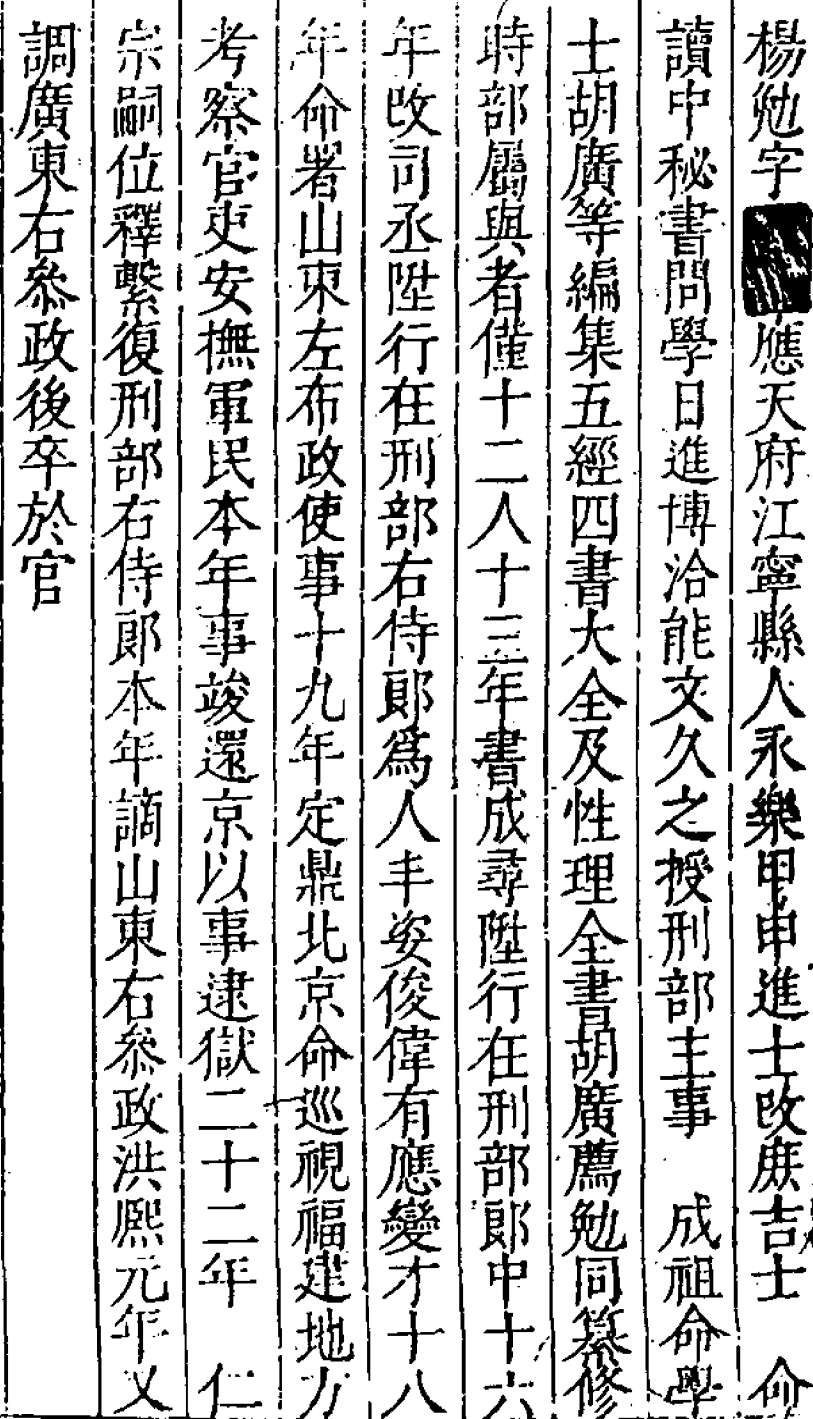 楊勉字應天府江寧縣人永樂甲申進士改庶吉士 命
讀中秘書問學日進博洽能文久之授刑部主事 成祖命學
士胡廣等編集五經四書大全及性理全書胡廣薦勉同纂修
時部屬與者僅十二人十三年書成尋陞行在刑部郎中十六
年改司丞陞行在刑部右侍郎爲人丰姿俊偉有應變才十八
年命署山東左布政使事十九年定鼎北京命巡視福建地方
考察官吏安撫軍民本年事竣還京以事逮獄二十二年 仁
宗嗣位釋繫復刑部右侍郎本年謫山東右叅政洪熙元年又
調廣東右叅政後卒於官